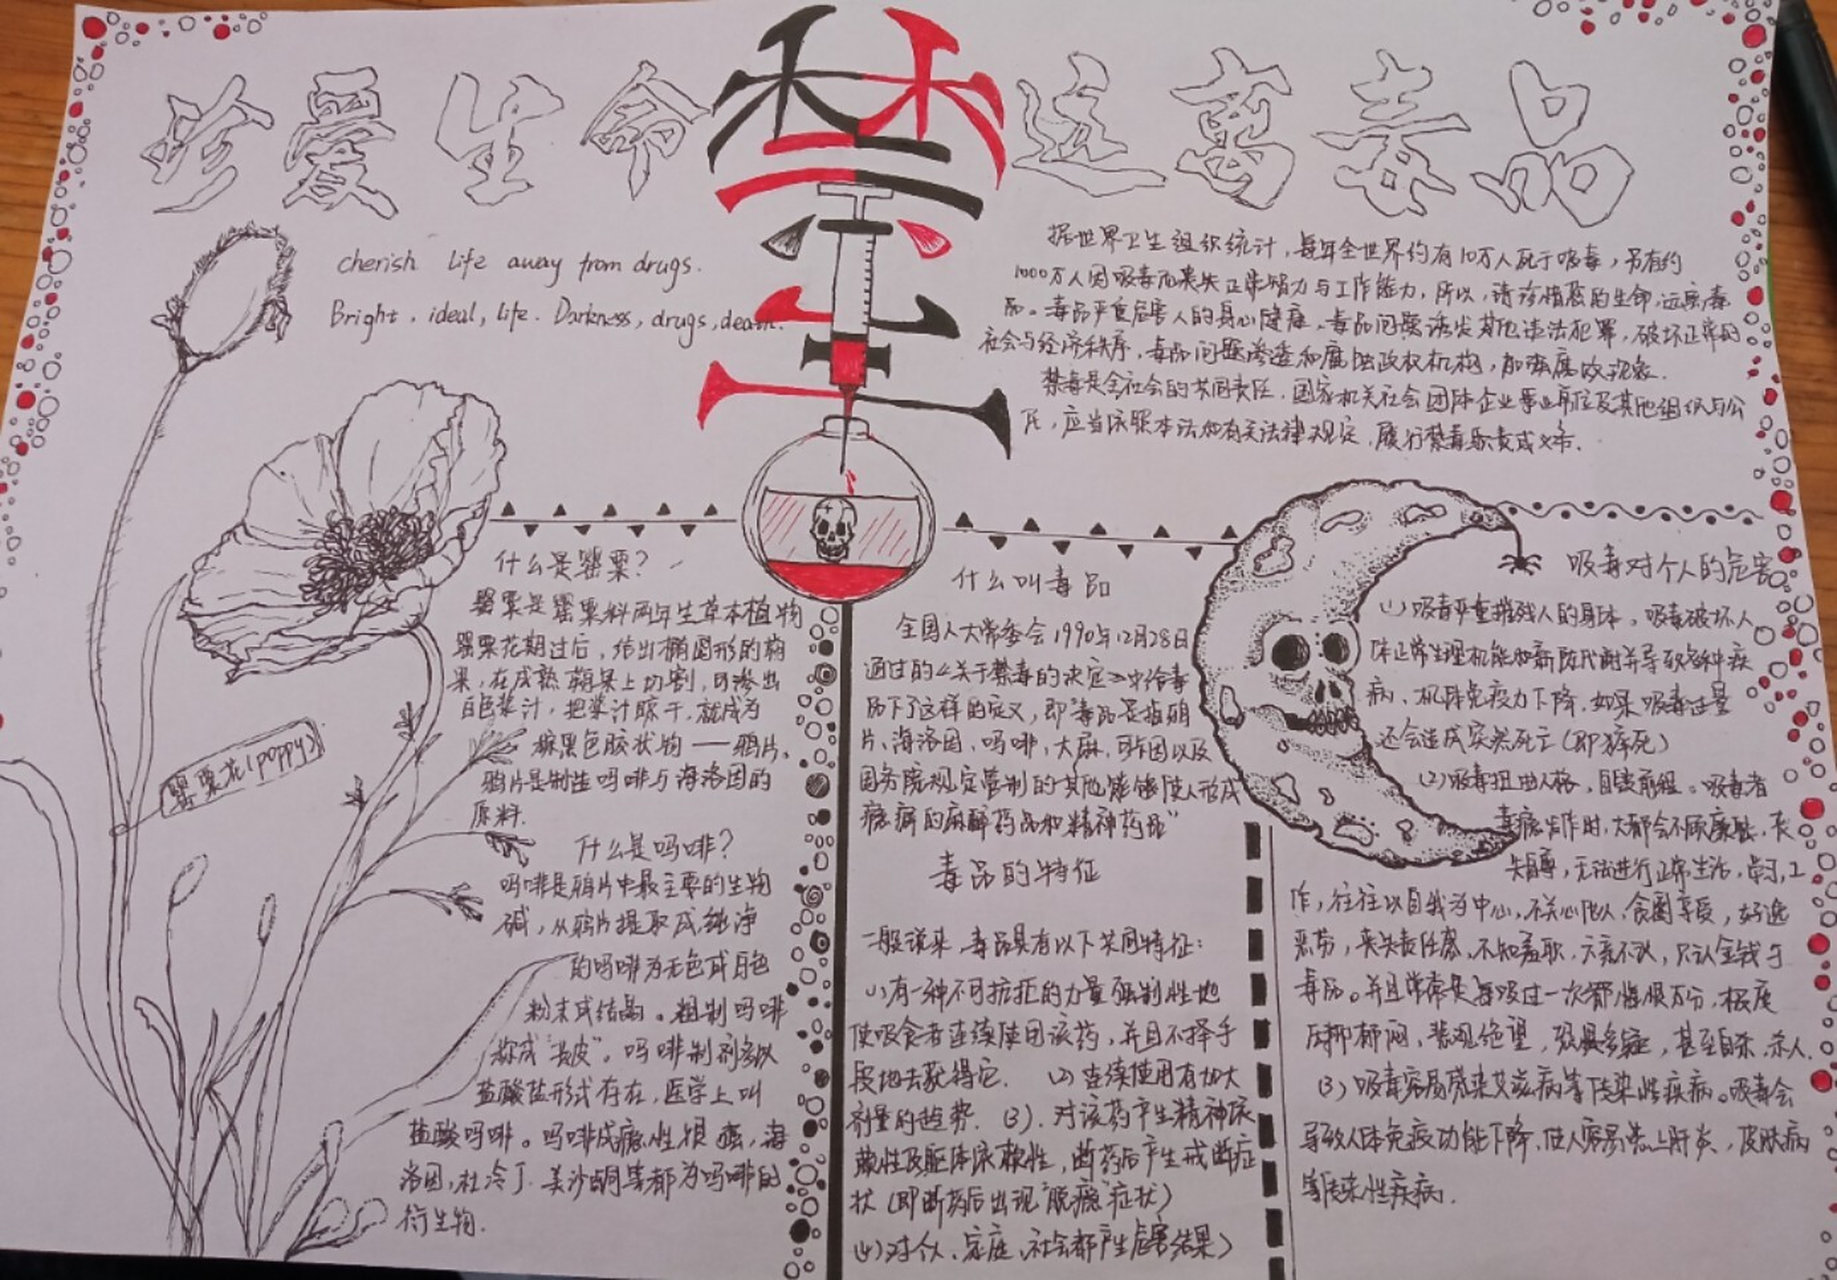 珍爱生命 禁毒 远离毒品
cherish life away from drugs.
Bright, ideal, life. Darkness, drugs, death.
据世界卫生组织统计,每年全世界约有10万人死于吸毒,另有约
1000万人因吸毒而丧失正常智力与工作能力,所以,请珍惜您的生命,远离毒
品。毒品严重危害人的身心健康,毒品问题诱发其他违法犯罪,破坏正常的
社会与经济秩序,毒品问题渗透和腐蚀政权机构,加深腐败现象.
禁毒是全社会的共同责任,国家机关社会团体企业事业单位及其他组织与公
民,应当依照本法和有关法律规定,履行禁毒职责或义务.
罂栗花(poppy)
什么是罂栗?
罂栗是罂栗科两年生草本植物
罂栗花期过后,结出椭圆形的蒴
果,在成熟蒴果上切割,可渗出
白色浆汁,把浆汁晾干,就成为
棕黑色胶状物——鸦片。
鸦片是制造吗啡与海洛因的
原料.
什么是吗啡?
吗啡是鸦片中最主要的生物
碱,从鸦片提取成.纯净
的吗啡为无色或白色
粉末或结晶。粗制吗啡
称成"皮"。吗啡制剂多以
盐酸盐形式存在,医学上叫
盐酸吗啡。吗啡成瘾性很强,海
洛因,杜冷丁.美沙酮等都为吗啡的
衍生物.
什么叫毒品
全国人大常委会1990年12月28日
通过的《关于禁毒的决定》中给毒
品下了这样的定义,即"毒品是指鸦
片、海洛因、吗啡,大麻,可卡因以及
国务院规定管制的其他能够使人形成
瘾癖的麻醉药品和精神药品"
毒品的特征
一般说来,毒品具有以下共同特征:
(1)有一种不可抗拒的力量强制性地
使吸食者连续使用该药,并且不择手
段地去获得它. (2)连续使用有加大
剂量的趋势. (3).对该药产生精神依
赖性及躯体依赖性,断药后产生戒断症
状(即断药后出现"脱瘾"症状)
(4)对个人、家庭、社会都产生危害结果)
吸毒对个人的危害
(1)吸毒严重摧残人的身体。吸毒破坏人
体正常生理机能和新陈代谢并导致各种疾
病、机体免疫力下降.如果吸毒过量
还会造成突然死亡(即猝死)
(2)吸毒扭曲人格,自毁前程。吸毒者
毒瘾发作时,大都会不顾廉耻、丧
失自尊,无法进行正常生活,学习,工
作,往往以自我为中心,不关心他人,贪图享受,好逸
恶劳,丧失责任感,不知羞耻,六亲不认,只认金钱与
毒品。并且常常是每吸过一次都悔恨万分,极度
压抑郁闷,悲观绝望,疑,甚至自杀、杀人.
(3)吸毒容易感染艾滋病等传染性疾病。吸毒会
导致人体免疫功能下降,使人容易患上肝炎,皮肤病
等传染性疾病.